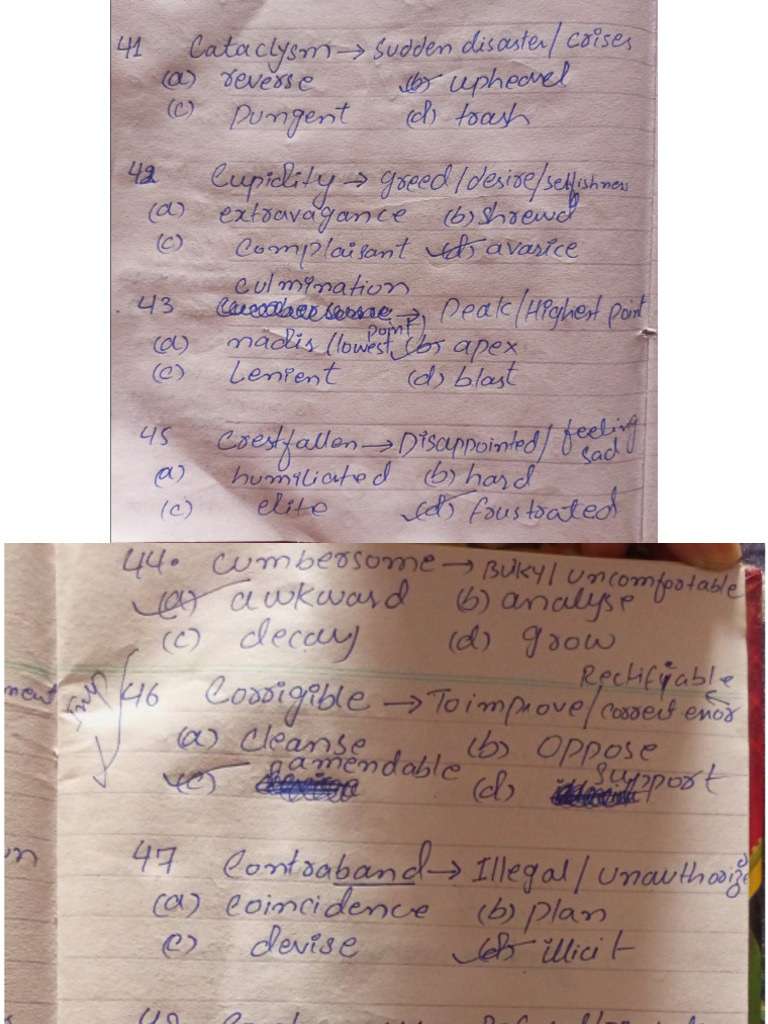 41 Cataclysm → Sudden disaster/ crises
(a) reverse (b) upheavel
(c) Pungent (d) trash
42 Cupidity → greed/desire/selfishness
(a) extravagance (b) shrewd
(c) Complaisant (d) avarice
culmination
43 → Peak/Highest point
(a) nadis (lowest point) (b) apex
(c) Lenient (d) blast
45 Crestfallen → Disappointed/ feeling sad
(a) humiliated (b) hard
(c) elite (d) frustrated
44. Cumbersome → Bulky/ uncomfortable
(a) awkward (b) analyse
(c) decay (d) grow
Rectifiable
46 Corrigible → To improve/correct error
Imp
(a) Cleanse (b) oppose
(c) amendable (d) support
47 Contraband → Illegal/ unauthorize
(a) coincidence (b) plan
(c) devise (d) illicit